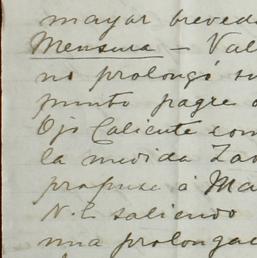 mayor breved
Mensura - Val
no prolongó su
punto pagre
Ojo Caliente com
la medida Zav
propuse á Ma
N.E. saliendo
una prolongac